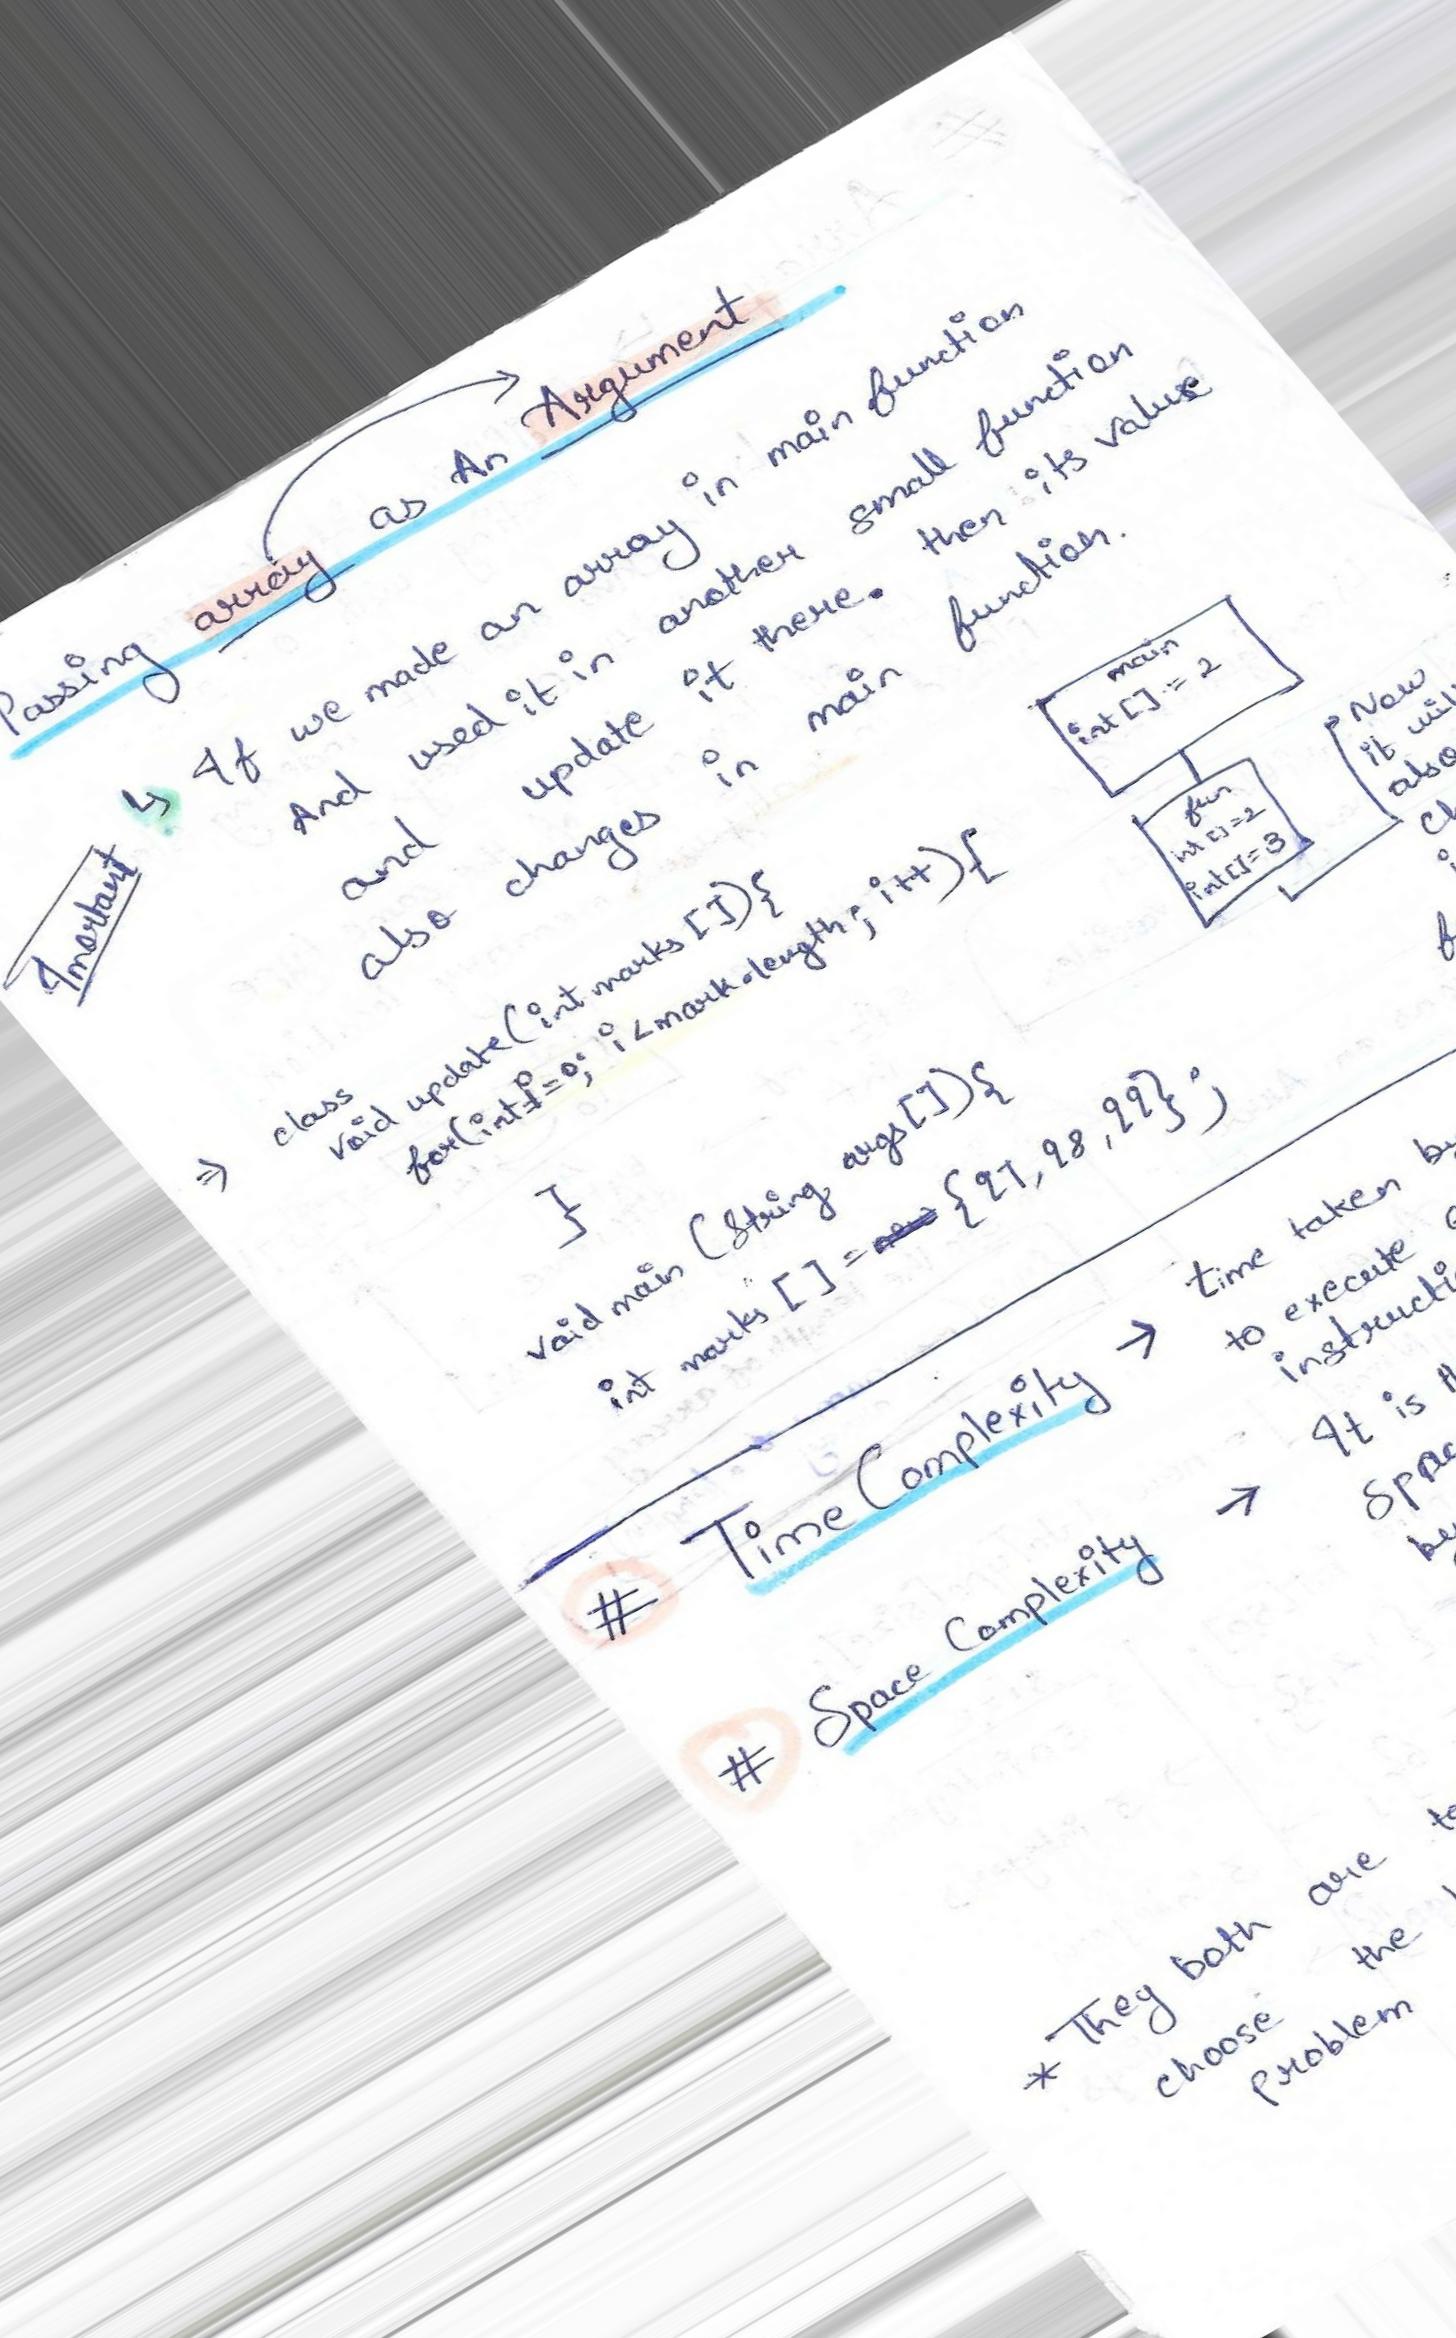 Passing array as An Argument
↳ If we made an array in main function
And used it in another small function
and update it there. then its value
also changes in main function.
Imortant
main
int [] = 2
fun
int []=2
int[]=3
Now
it
also
⇒ class
void update(int marks []){
for(int i=0; i<mark.length; i++){
}
void main (String args[]){
int marks [] = {97, 98, 99};
# Time Complexity → time taken
to execute
# Space Complexity → It is
* They both are
choose the
problem